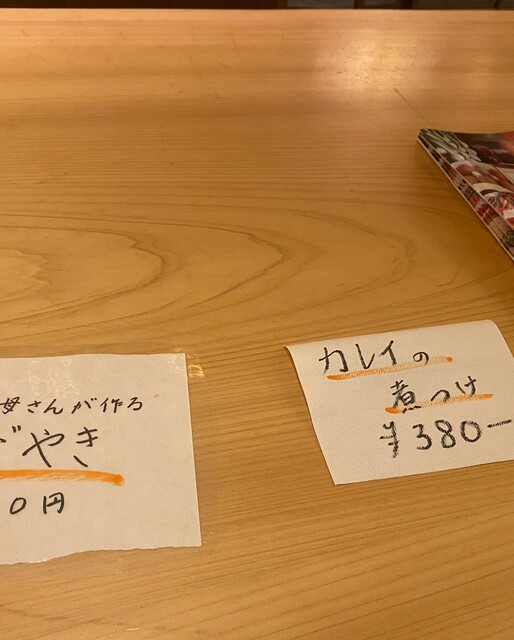 母さんが作る
やき
0円
カレイの
煮つけ
¥380-